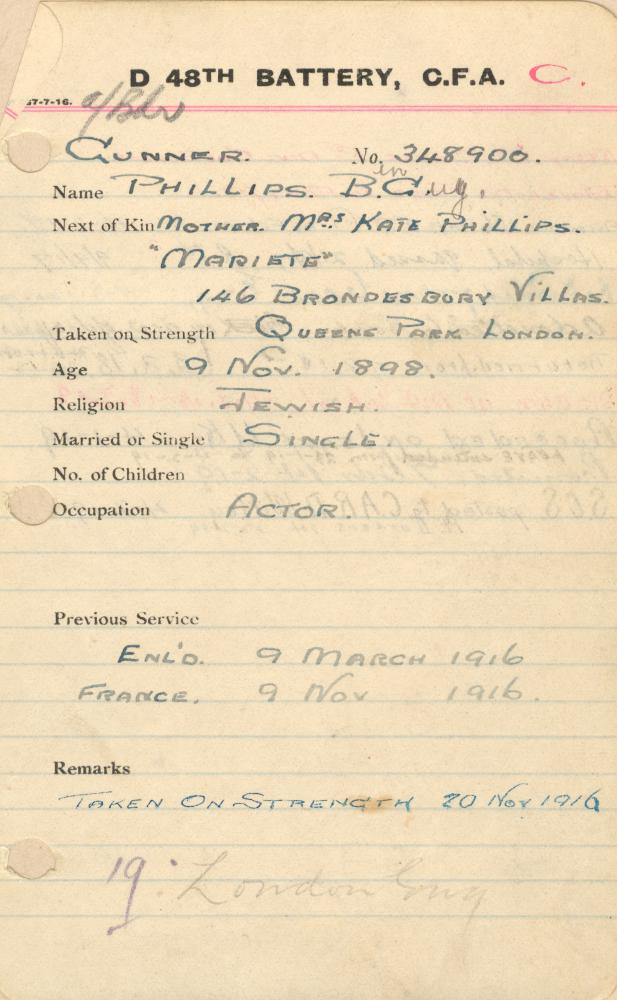 D 48TH BATTERY, C.F.A. C.
27-7-16. a/Bdr
GUNNER. No. 348900.
Name PHILLIPS. B.G.
Next of Kin MOTHER. MRS KATE PHILLIPS.
"MARIETE"
146 BRONDESBURY VILLAS.
Taken on Strength QUEENS PARK LONDON.
Age 9 NOV. 1898.
Religion JEWISH.
Married or Single SINGLE.
No. of Children
Occupation ACTOR.
Previous Service
ENL'D. 9 MARCH 1916
FRANCE. 9 NOV 1916.
Remarks
TAKEN ON STRENGTH 20 NOV 1916
19. London Eng